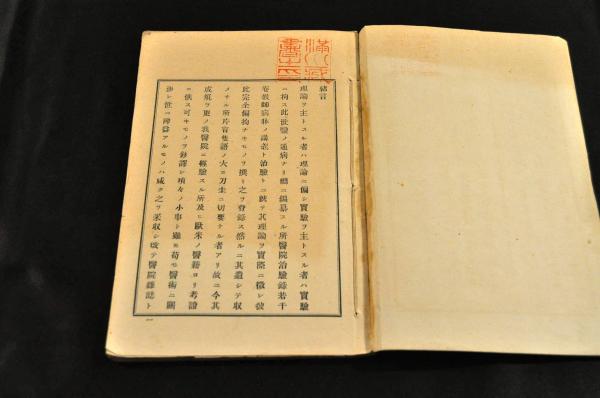 緒言
理論ヲ主トスル者ハ理論ニ偏シ實驗ヲ主トスル者ハ實驗
ニ拘ス此世醫ノ通病ナリ曩ニ編纂スル所醫院治驗錄若干
卷敎師病牀ノ講莚ト治驗トニ就テ其理論ヲ實際ニ徵シ彼
此完全偏拘ナキモノヲ撰ミ之ヲ登錄ス然ルニ其遺シテ收
メサル所片言隻語ノ大ニ刀圭ニ切要ナル者アリ故ニ今其
成規ヲ更ノ我醫院ニ經驗スル所及ヒ歐米ノ醫籍ヨリ考證
ニ供ス可キモノヲ抄譯シ瑣々ノ小事ト雖モ苟モ醫術ニ關
渉シ世ニ裨益アルモノハ咸ク之ヲ采收シ改テ醫院雜誌ト
一